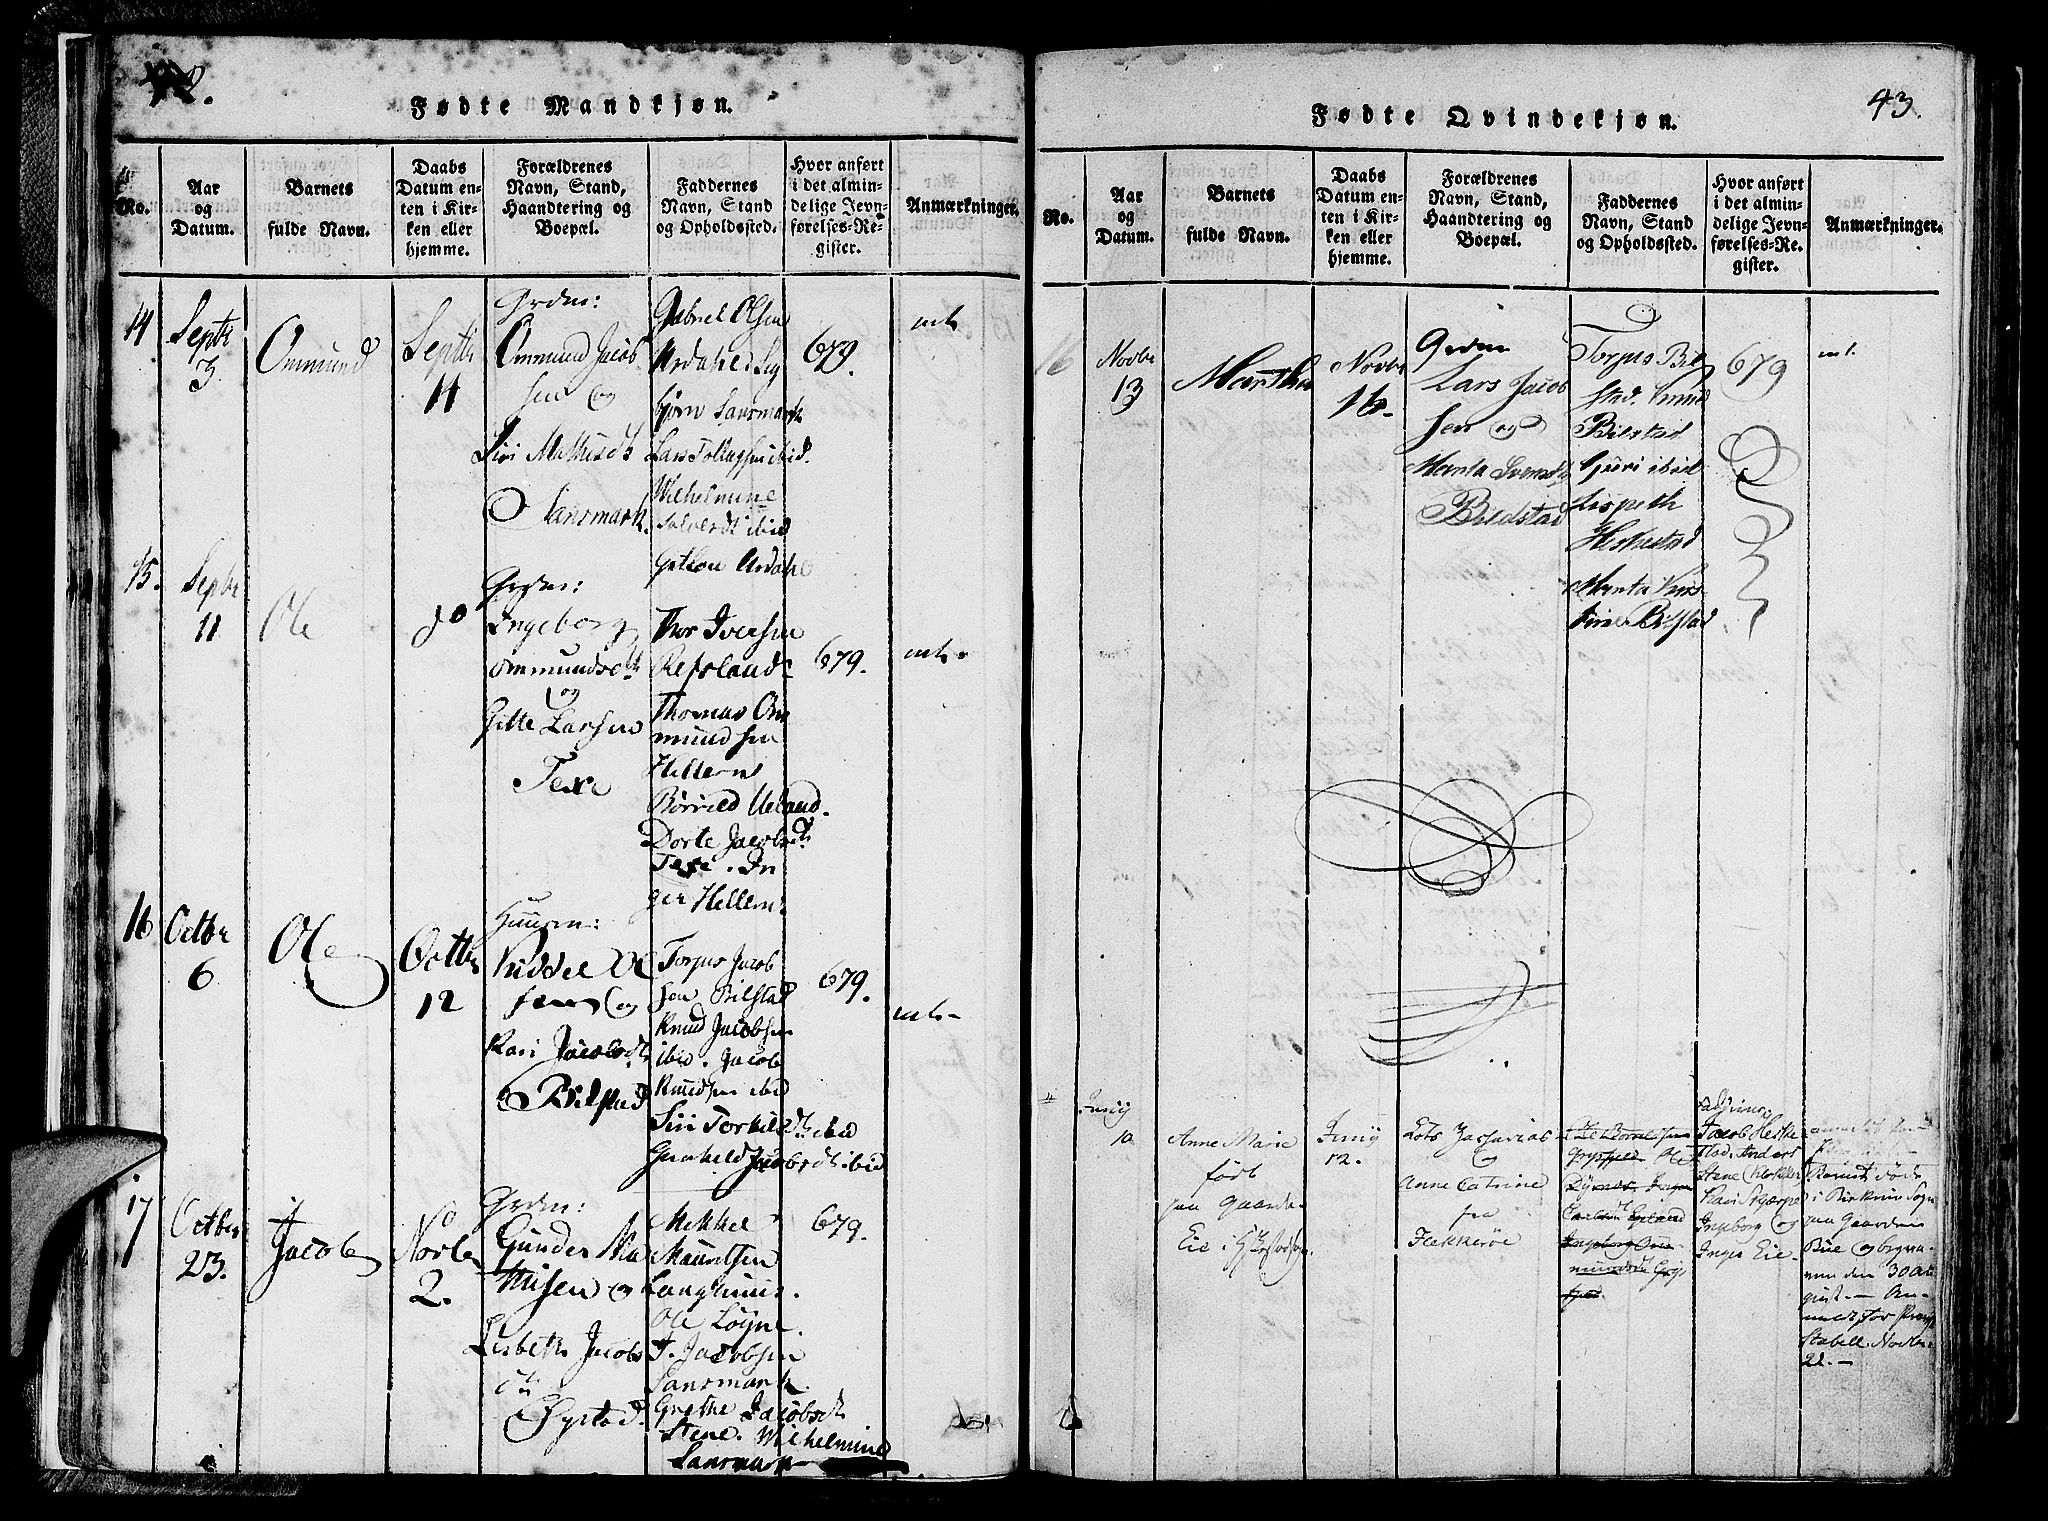 42.
Fødte Mandkjøn.
No.
Aar
og
Datum.
Barnets
fulde Navn.
Daabs
Datum en-
ten i Kir-
ken eller
hjemme.
Forældrenes
Navn, Stand,
Haandtering og
Boepæl.
Faddernes
Navn, Stand
og Opholdssted.
Hvor anført
i det almin-
delige Jevn-
førelses-Re-
gister.
Anmærkninger.
14
Septbr
3
Ommund
Septbr
11
Grdm:
Ommund Jacob
sen og
Siri Mathisdt
Sansmark.
Gabriel Olsen
Ardahl. Sig
bjørn Sansmark
Lars Tollagsen ibid.
Wilhelmine
Salvesdt ibid
Ardahl
679.
15.
Septbr
11
Ole
do
Grdm:
Ingeborg
Ommundsdt
og
Gitte Larsen
Texe
Thor Iversen
Refsland
Thomas Om
mundsen
Hellern
Børrild Ueland.
Dorte Jacobsdt
Texe. In
ger Hellern.
679.
16
Octbr
6
Ole
Octbr
12
Huusm:
Kiddel Ol
sen og
Kari Jacobsdt
Bilstad
Torjus Jacob
sen Bilstad
Knud Jacobsen
ibid. Jacob
Knudsen ibid
Siri Torkildsdt ibid
Gunhild Jacobsdt ibid
679.
17
Octbr
23.
Jacob
Novbr
2.
Grdm:
Gunder Ma
thisen og
Lisbeth Jacobs
dt
Mikkel
Mauritsen
Ole Løyne.
T. Jacobsen
Sansmark.
Grethe Jacobsdt
Stene. Wilhelmine
Sansmark
679.
43.
Fødte Qvindekjøn.
No.
Aar
og
Datum.
Barnets
fulde Navn.
Daabs
Datum en-
ten i Kir-
ken eller
hjemme.
Forældrenes
Navn, Stand,
Haandtering og
Boepæl.
Faddernes
Navn, Stand
og Opholdssted.
Hvor anført
i det almin-
delige Jevn-
førelses-Re-
gister.
Anmærkninger.
16
Novbr
13
Martha
Novbr
16.
Grdm
Lars Jacob
sen og
Marta Svensdt
Bildstad
Torjus Bil
stad. Knud
Bilstad
Guri ibid
Lispeth
Heskestad
Marta Kirs
tine Bilstad
679
Juny
10
Anne Marie
født
paa Gaarde
Eie i
Juny
12.
Lots Zacharias
og
Anne Catrine
fra
Flekkerøe
Jacob Heske
stad. Anders
Stene
Kari Skjerpe
Ingeborg og
Inger Eie.
Barnet døde
i Birkrem Sogn
paa Gaarden
Bue og begra-
ven den 30 Au
gust. — An-
meldt for Provst
Stabell. Novbr
21. —